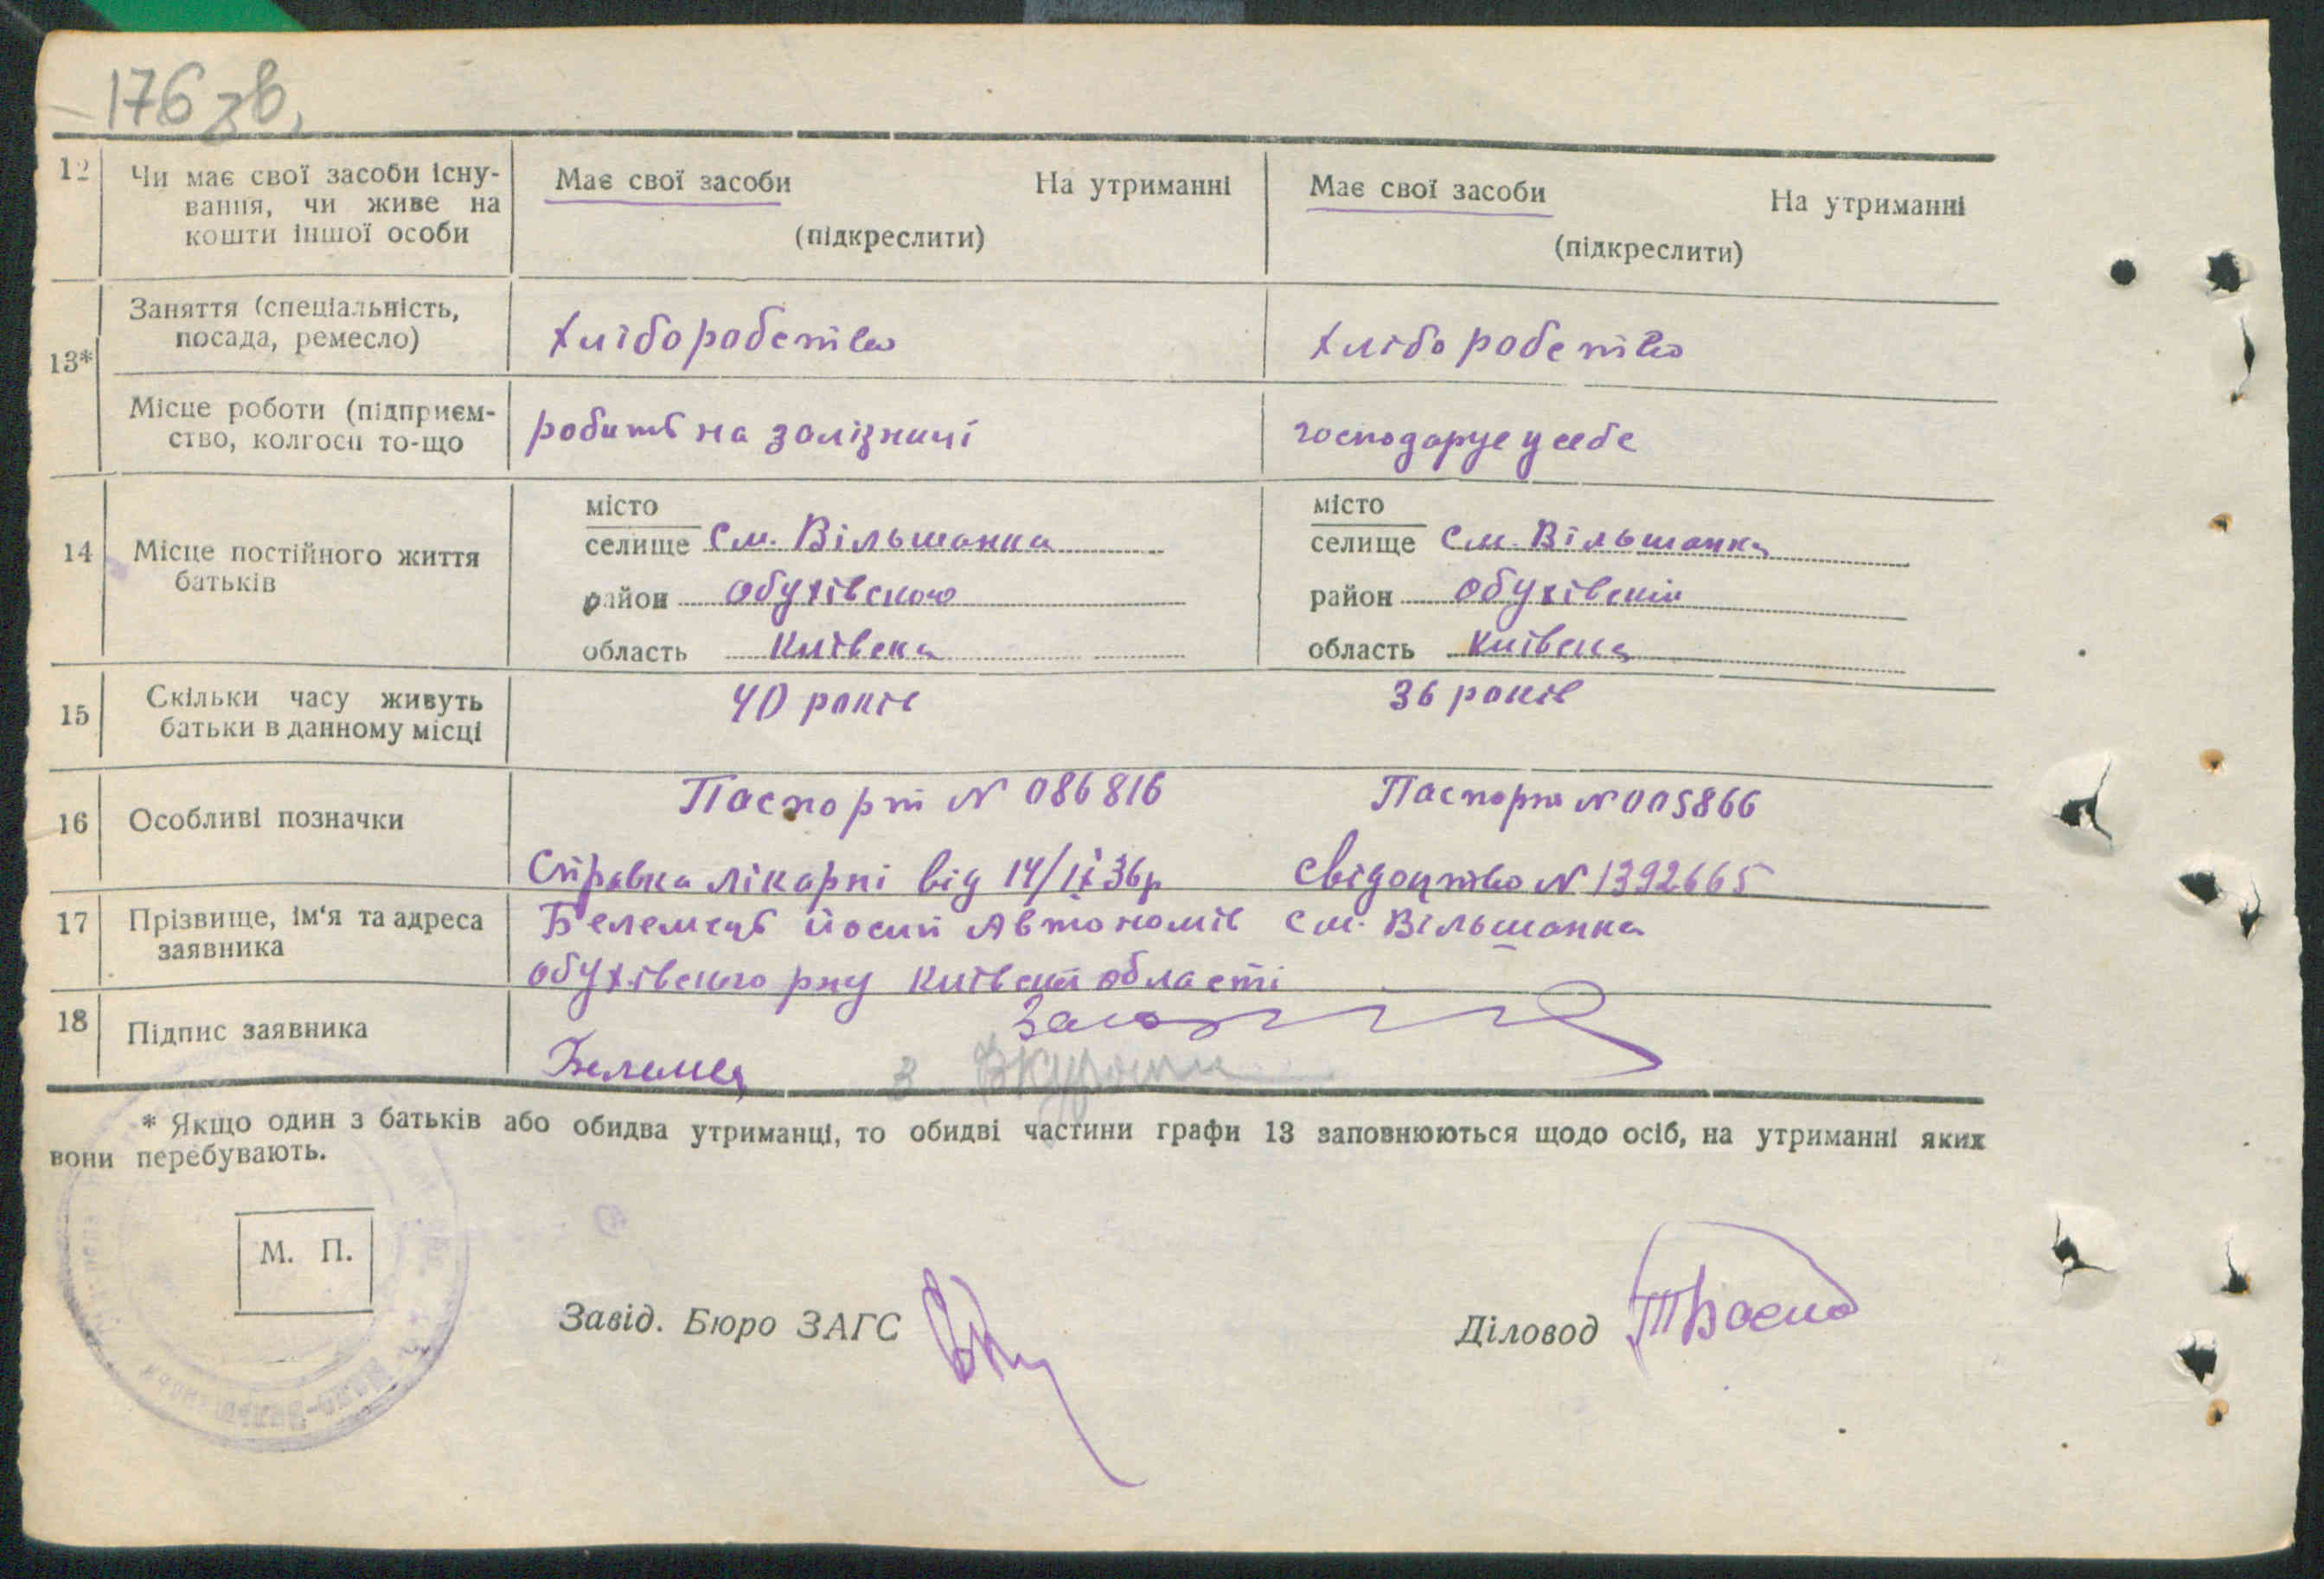 176 зв.
12 Чи має свої засоби існу- Має свої засоби На утриманні Має свої засоби На утриманні
вання, чи живе на
кошти іншої особи (підкреслити) (підкреслити)
13* Заняття (спеціальність, хліборобство хліборобство
посада, ремесло)
Місце роботи (підприєм- робить на залізниці господарує у себе
ство, колгосп то-що
14 Місце постійного життя
батьків
місто місто
селище См. Вільшанка селище См. Вільшанка
район Обухівского район Обухівский
область Київска область Київска
15 Скільки часу живуть 40 років 36 років
батьки в данному місці
16 Особливі позначки Паспорт N 086816 Паспорт N 005866
Справка лікарні від 14/ІХ 36р Свідоцтво N 1392665
17 Прізвище, ім'я та адреса Белемець Йосип Автономів См. Вільшанка
заявника Обухівского р-ну Київскої області
18 Підпис заявника Белемец
* Якщо один з батьків або обидва утриманці, то обидві частини графи 13 заповнюються щодо осіб, на утриманні яких
вони перебувають.
М. П.
Завід. Бюро ЗАГС
Діловод